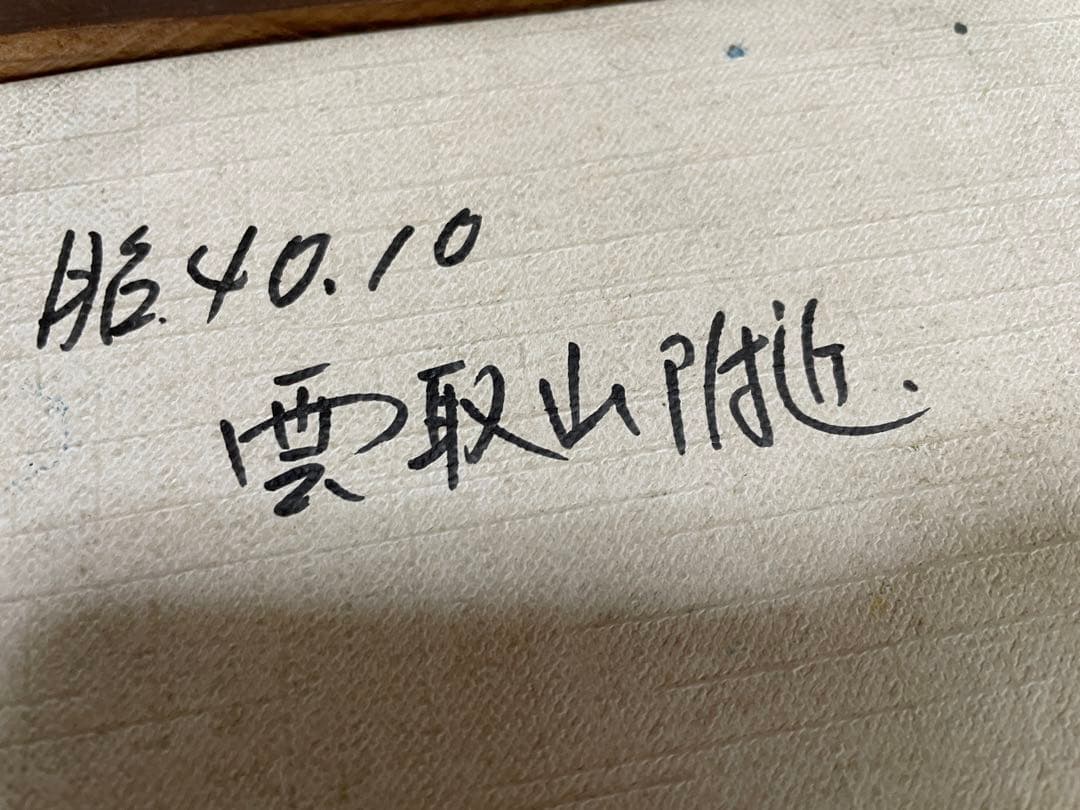 昭.40.10
雲取山附近.